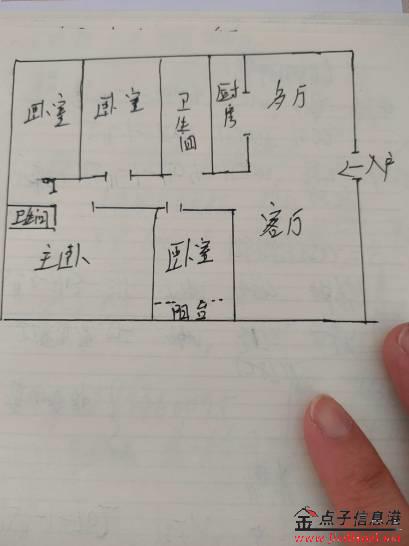 卧室
卧室
卫生间
厨房
餐厅
入户
卫生间
主卧
卧室
客厅
阳台
金点子信息港